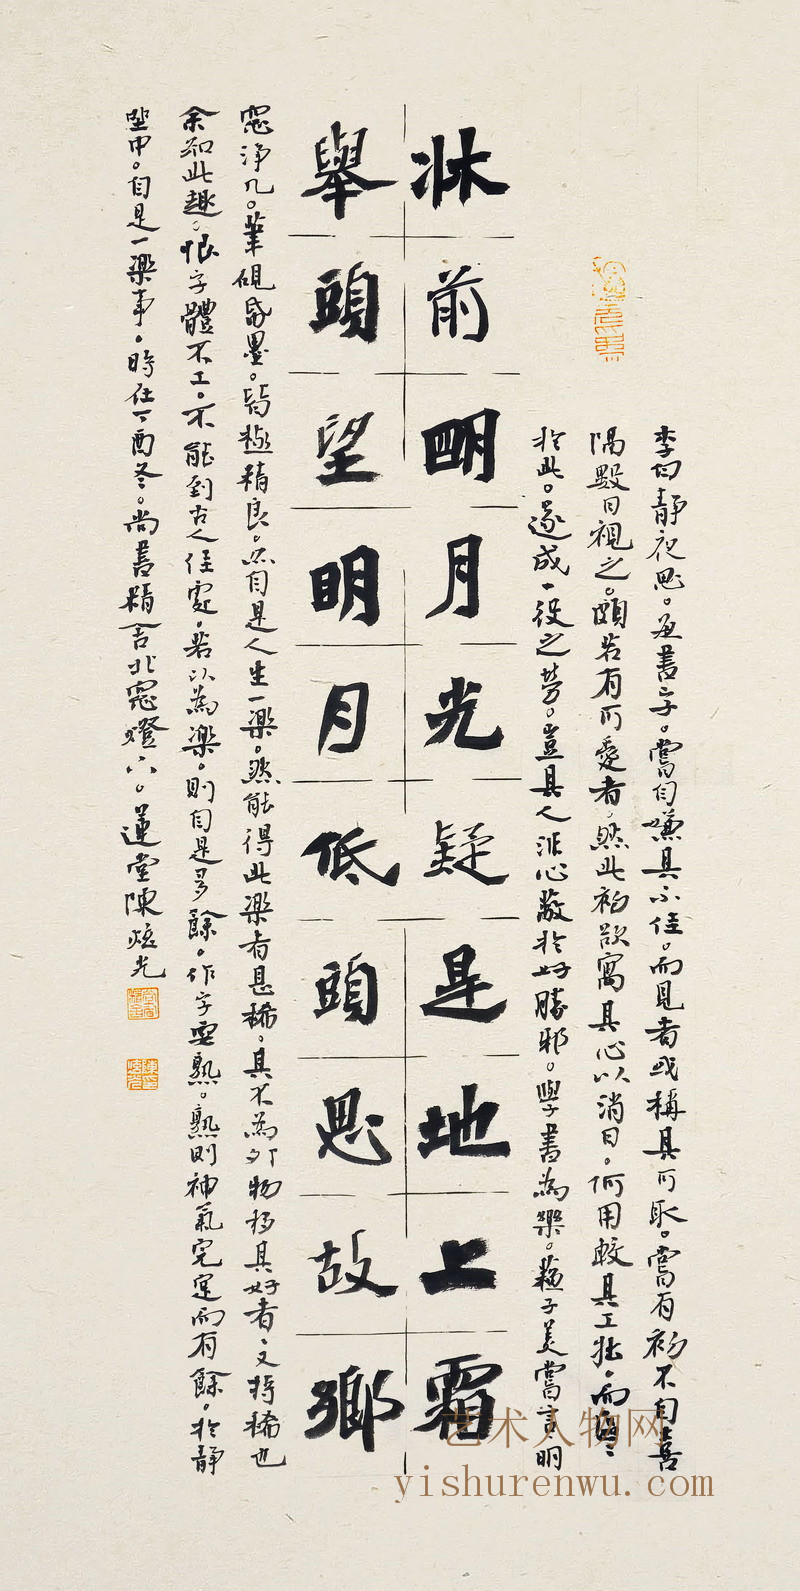 李白靜夜思。並書二字。嘗自嫌其不佳。而見者或稱其可取。嘗有初不自喜
隔數日視之。頗若有可愛者。然此初欲寓其心以消日。何用較其工拙。而區區
於此。遂成一役之勞。豈其人非心蔽於好勝邪。學書為樂。蘇子美嘗言明
牀前明月光疑是地上霜
舉頭望明月低頭思故鄉
窓淨几。筆硯帋墨。皆極精良。亦自是人生一樂。然能得此樂者甚稀。其不為外物移其好者。又特稀也
余知此趣。恨字體不工。不能到古人佳處。若以為樂。則自是多餘。作字要熟。熟則神氣完寔而有餘。於靜
坐中。自是一樂事。時在丁酉冬。尚書精舍北窓燈下。蓮堂陳炫光
艺术人物网
yishurenwu.com